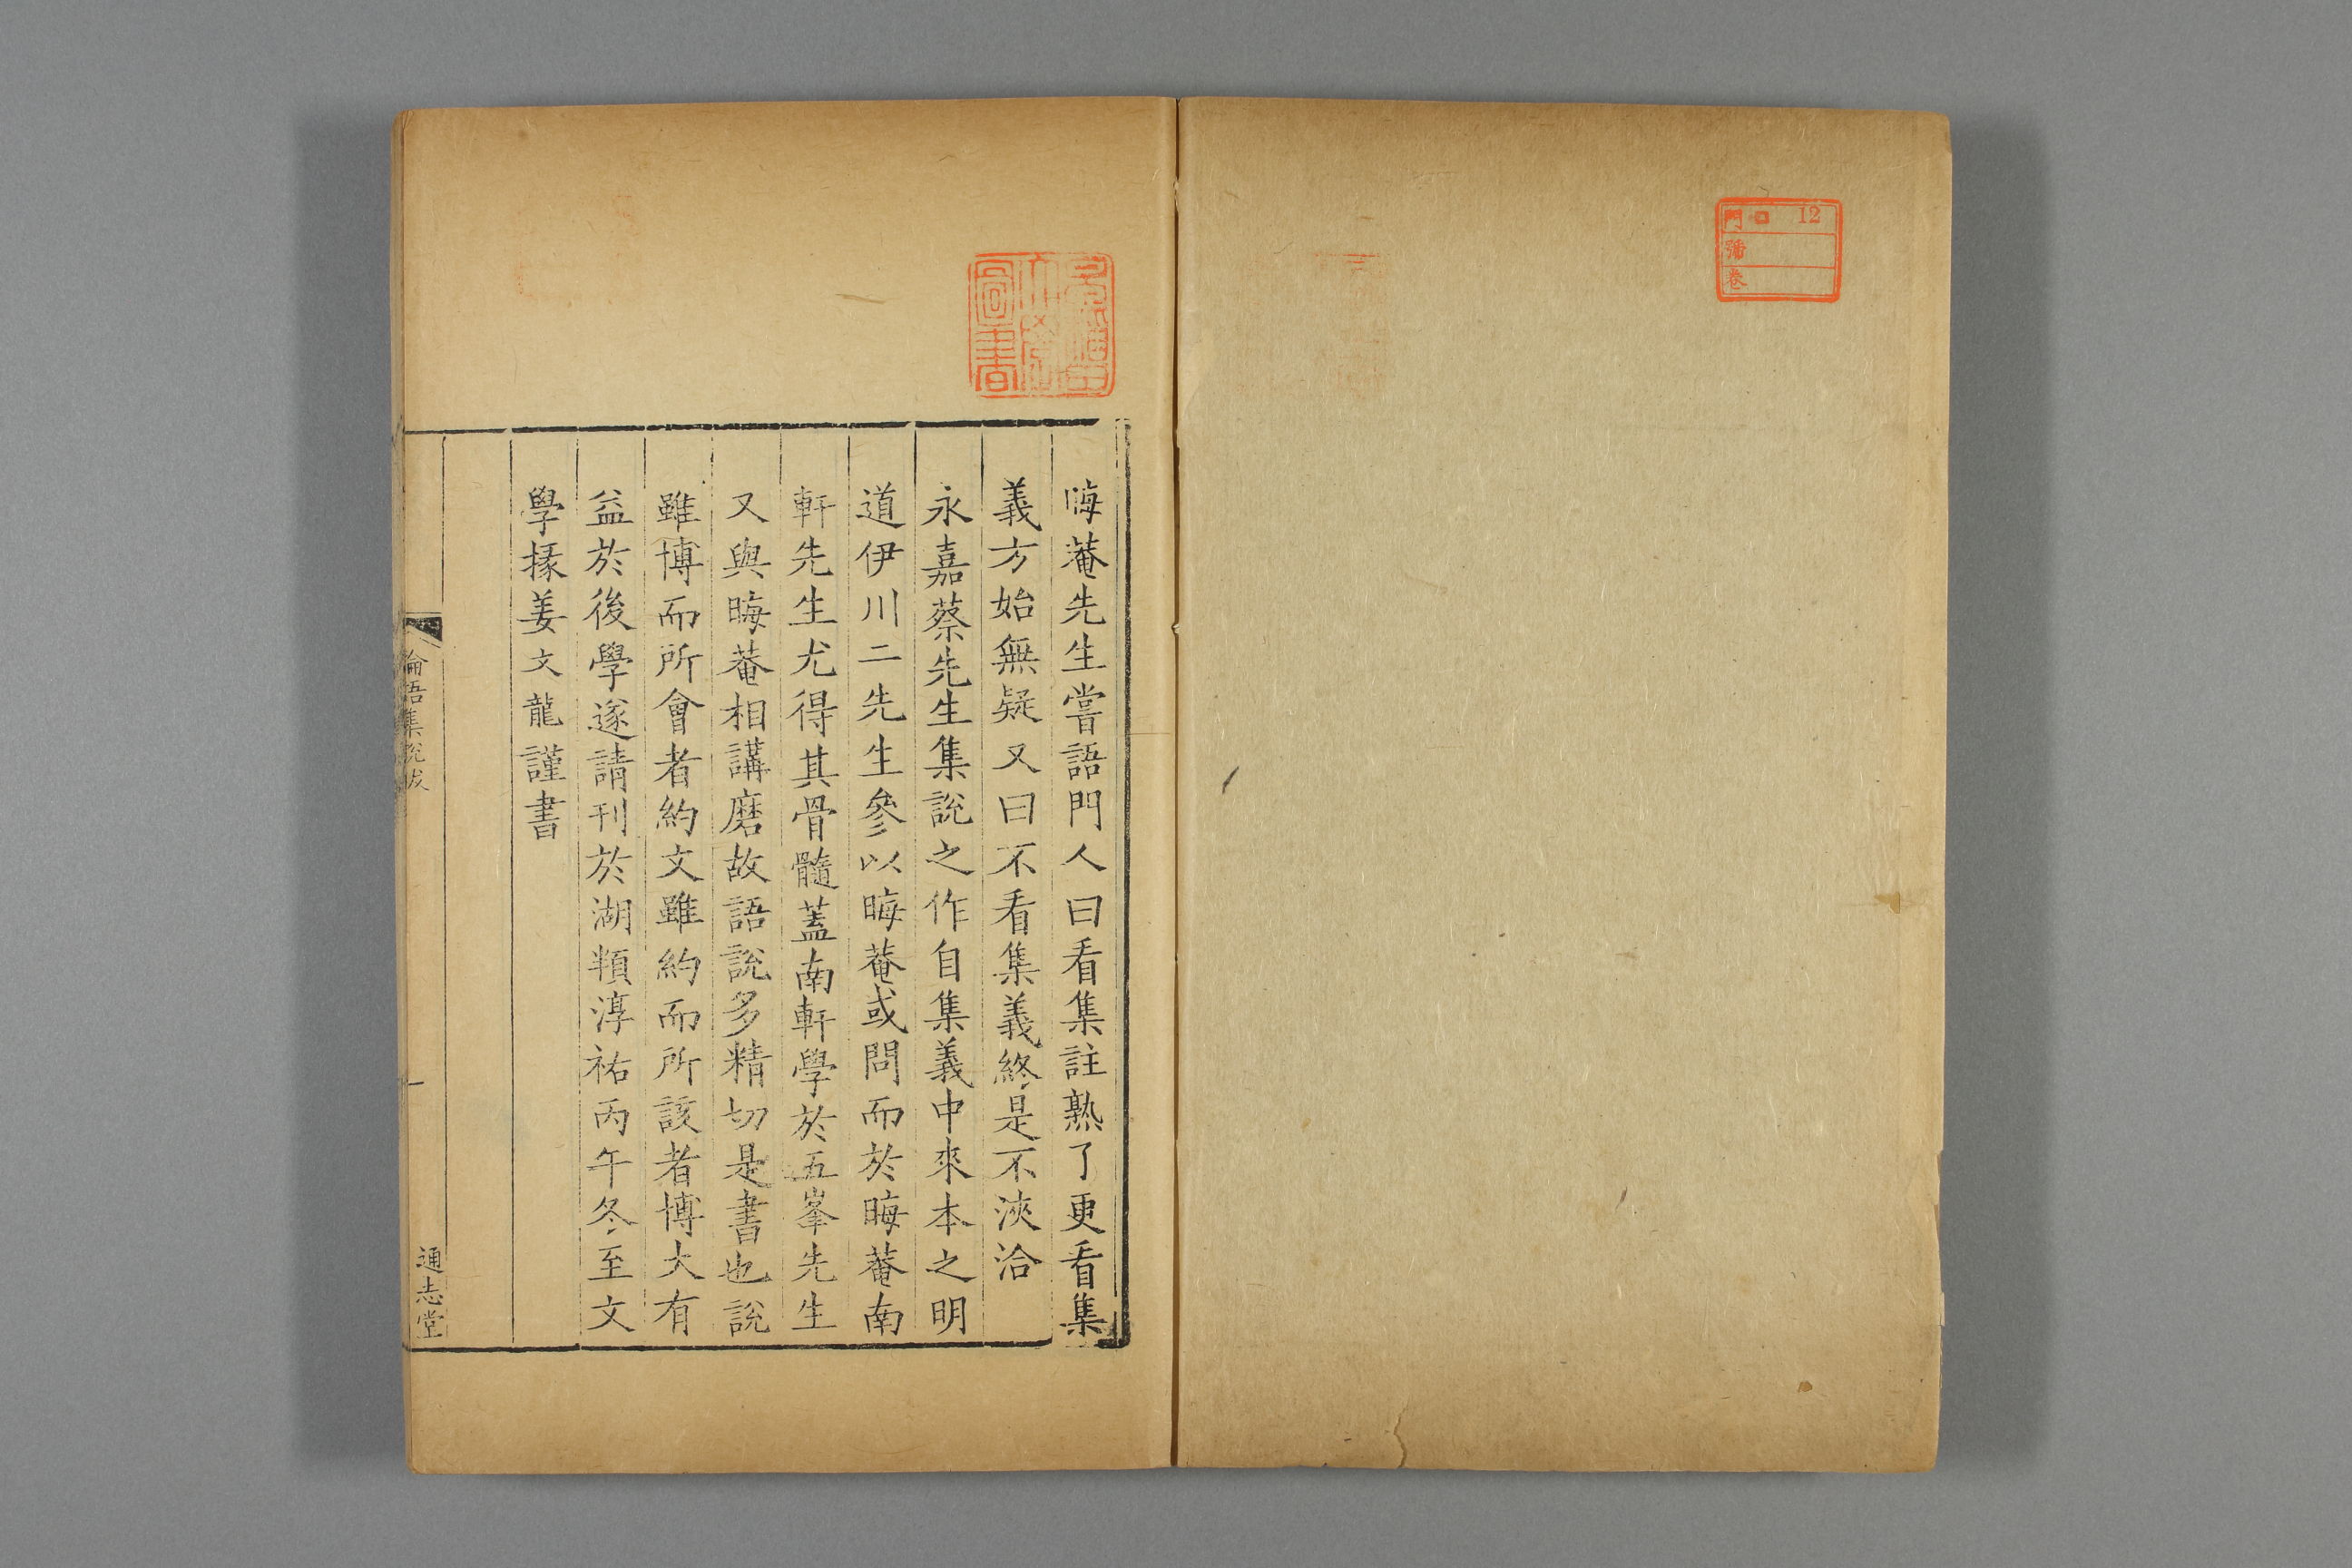 門 12
號
卷
晦菴先生嘗語門人曰看集註熟了更看集
義方始無疑又曰不看集義終是不浹洽
永嘉蔡先生集說之作自集義中來本之明
道伊川二先生參以晦菴或問而於晦菴南
軒先生尤得其骨髓蓋南軒學於五峯先生
又與晦菴相講磨故語說多精切是書也說
雖博而所會者約文雖約而所該者博大有
益於後學遂請刊於湖頖淳祐丙午冬至文
學掾姜文龍謹書
論語集說跋
一
通志堂